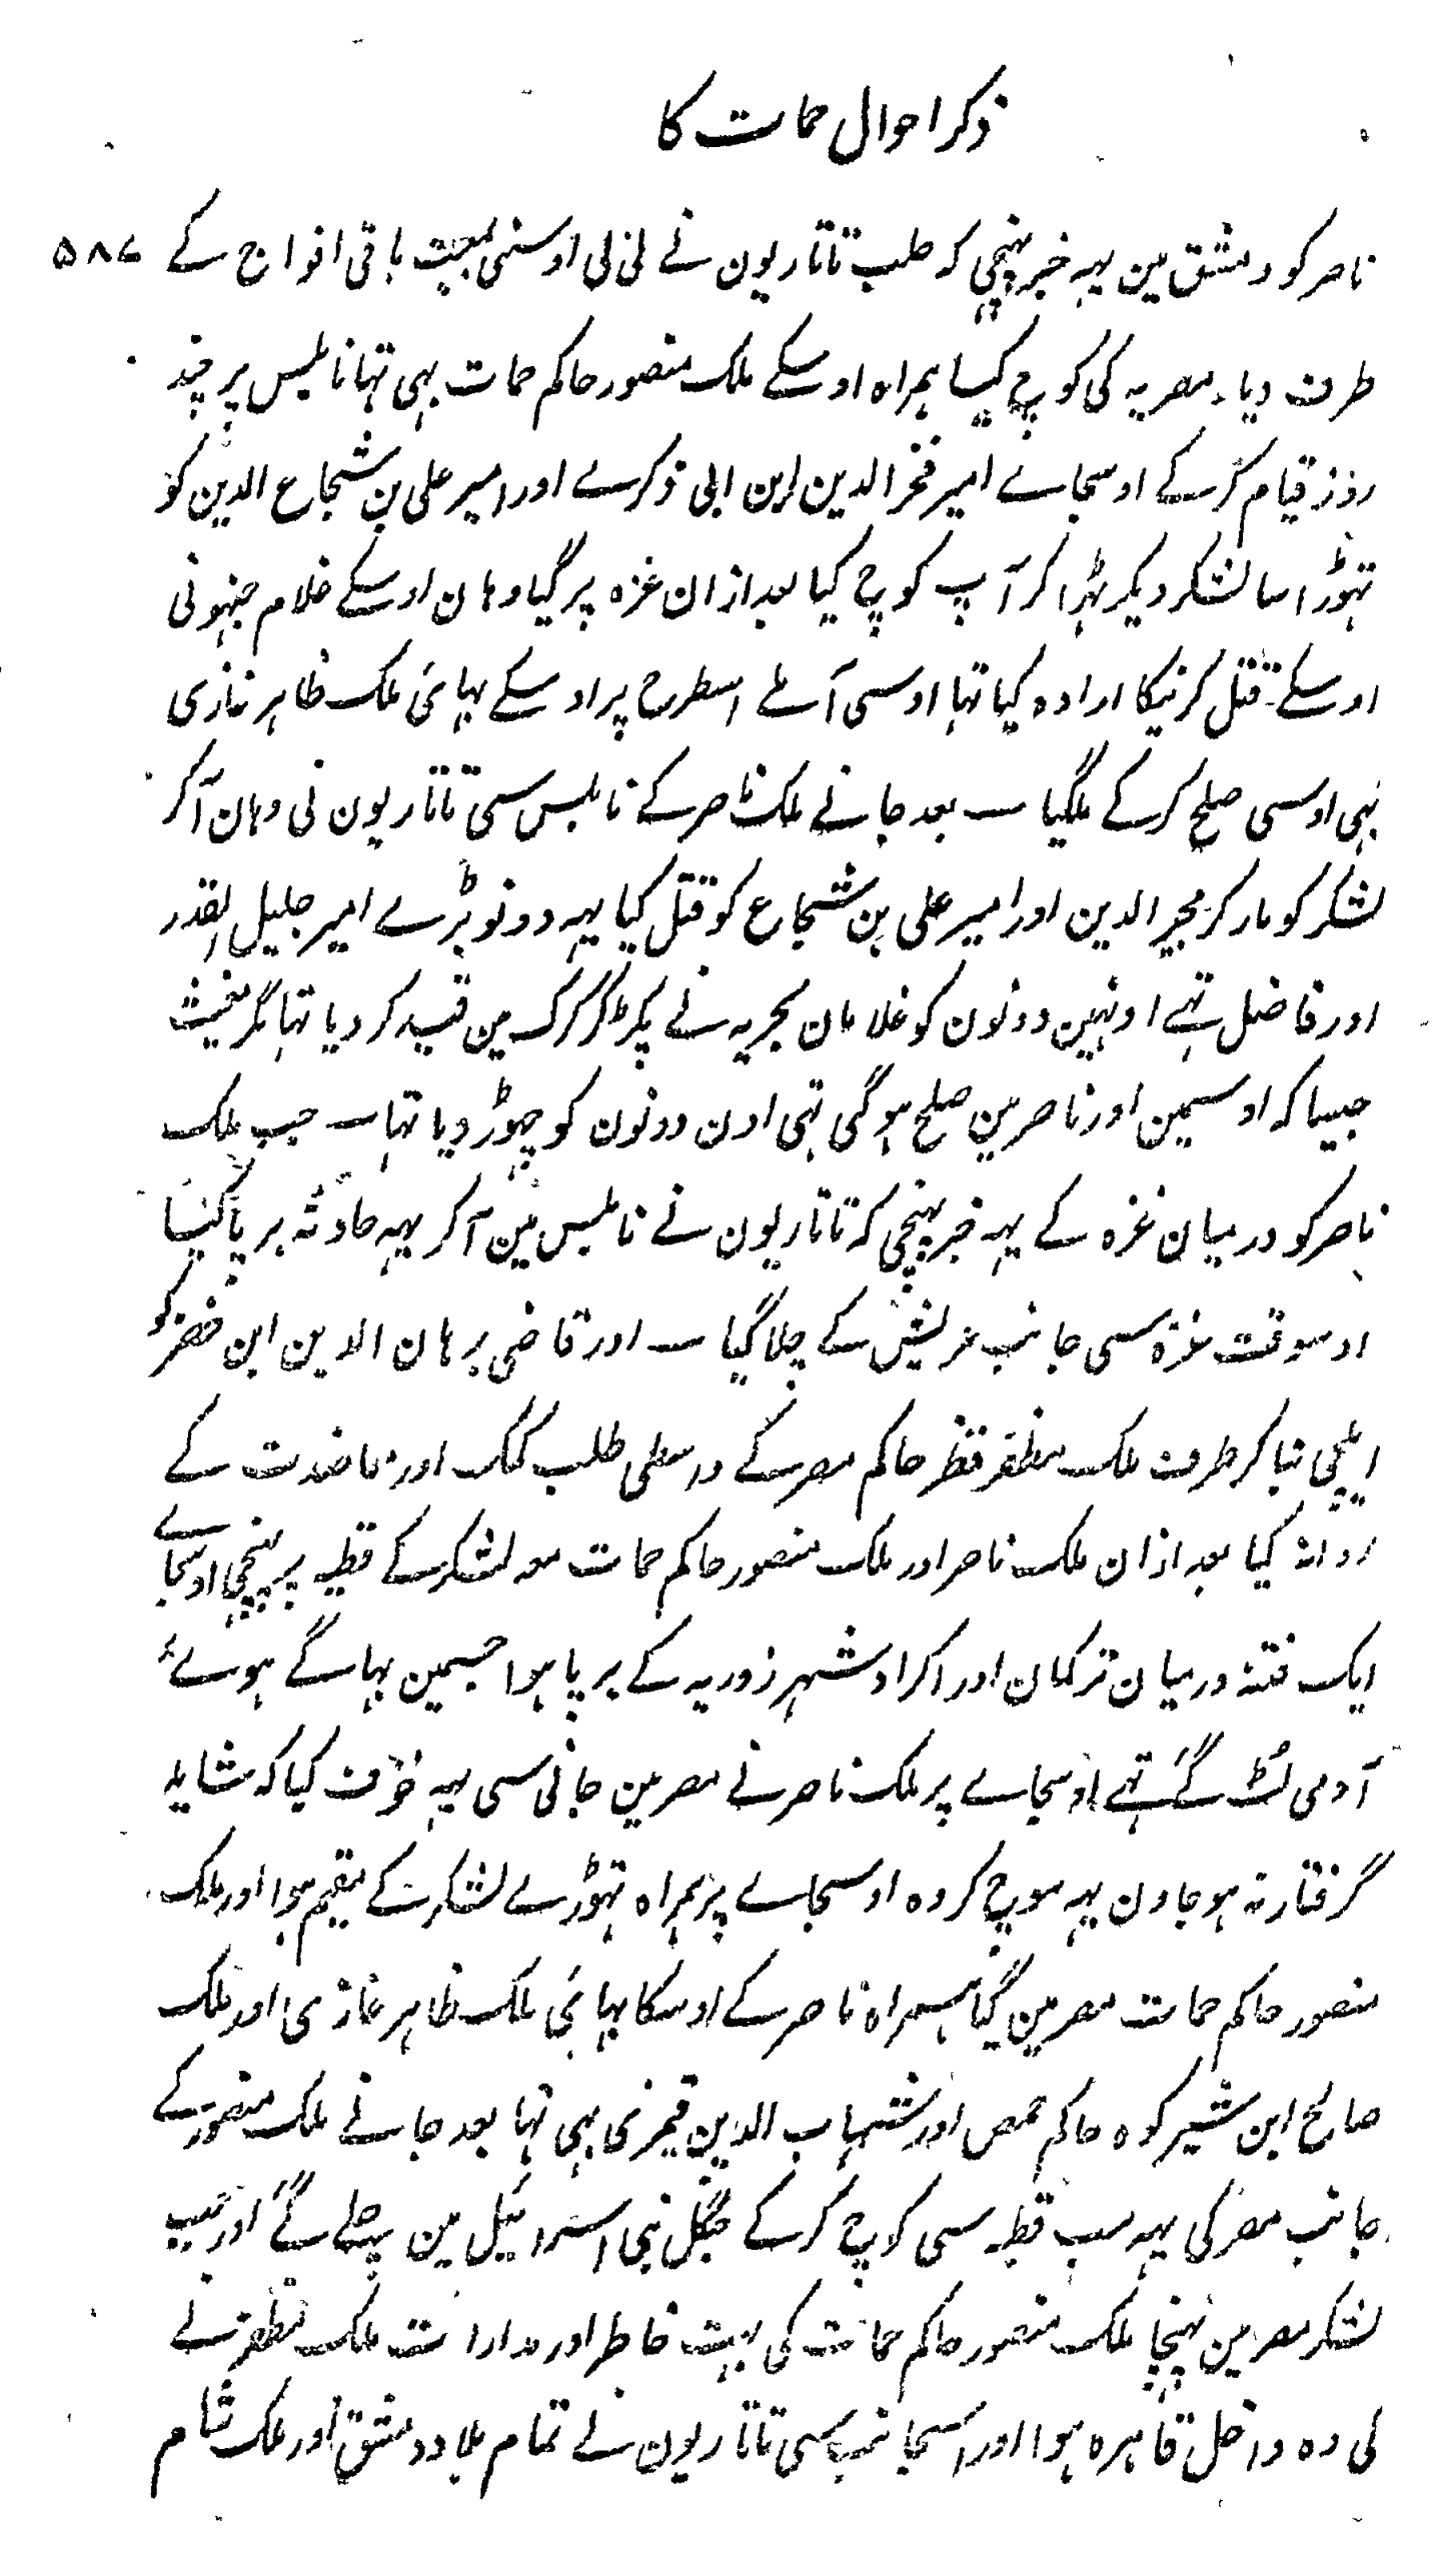 ذکر احوال حمات کا
ناصر کو دمشق مین یہہ خبر پہنچی کہ حلب تاتاریون نے لی لی اوسنی بمعیت باقی افواج کے ۵۸۷
طرف دیار مصریہ کی کوچ کیا ہمراہ اوسکے ملک منصور حاکم حمات بہی تہا نابلس پر چند
روز قیام کرکے اوسجائے امیر مجیر الدین ابن ابی ذکرے اور امیر علی بن شجاع الدین کو
تہوڑا سا لشکر دیکر ٹہرا کر آپ کوچ کیا بعد ازان غزہ پر گیا وہان اوسکے غلام جنہونی
اوسکے قتل کرنیکا ارادہ کیا تہا اوسی آملے اسطرح پر اوسکے بہائی ملک ظاہر غازی
بہی اوسی صلح کرکے ملگیا ــ بعد جانے ملک ناصر کے نابلس سی تاتاریون نی وہان آکر
لشکر کو مار کر مجیر الدین اور امیر علی بن شجاع کو قتل کیا یہہ دونو بڑے امیر جلیل القدر
اور فاضل تہے اونہین دونون کو غلامان بحریہ نے پکڑ کر کرک مین قید کر دیا تہا مگر مغیث
جیسا کہ اوسمین اور ناصر مین صلح ہوگی تہی اون دونون کو چہوڑ دیا تہا ــ جب ملک
ناصر کو درمیان غزہ کے یہہ خبر پہنچی کہ تاتاریون نے نابلس مین آکر یہہ حادثہ برپا کیا
اوسوقت غزہ سی جانب عریش کے چلا گیا ــ اور قاضی برہان الدین ابن خضر کو
ایلچی بنا کر طرف ملک مظفر قطز حاکم مصر کے واسطی طلب کمک اور معاضدت کے
روانہ کیا بعد ازان ملک ناصر اور ملک منصور حاکم حمات معہ لشکر کے قطیہ پر پہنچی اوسجائے
ایک فتنہ درمیان ترکمان اور اکراد شہر زوریہ کے برپا ہوا جسمین بہاگے ہوئے
آدمی لٹ گئے تہے اوسجائے پر ملک ناصر نے مصر مین جانی سی یہہ خوف کیا کہ شاید
گرفتار نہ ہو جاون یہہ سوچ کر وہ اوسجائے پر ہمراہ تہوڑے لشکر کے مقیم ہوا اور ملک
منصور حاکم حمات مصر مین گیا ہمراہ ناصر کے اوسکا بہائی ملک ظاہر غازی اور ملک
صالح ابن شیرکوہ حاکم حمص اور شہاب الدین قیمری بہی تہا بعد جانے ملک منصور کے
جانب مصر کی یہہ سب قطیہ سی کوچ کرکے جنگل بنی اسرائیل مین چلے گئے اور جب
لشکر مصر مین پہنچا ملک منصور حاکم حمات کی بہت خاطر اور مدارات ملک مظفر نے
کی وہ داخل قاہرہ ہوا اور اسجانب سی تاتاریون نے تمام بلاد دمشق اور ملک شام